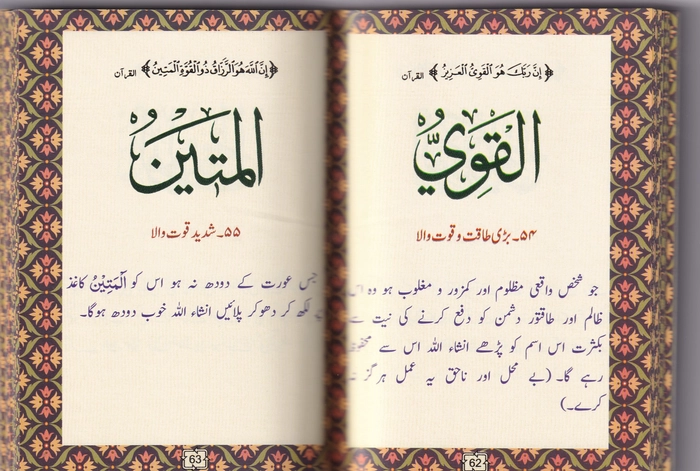 ﴿ اِنَّ رَبَّكَ هُوَ الْقَوِىُّ الْعَزِيزُ ﴾ القرآن
اَلْقَوِيُّ
۵۴۔ بڑی طاقت و قوت والا
جو شخص واقعی مظلوم اور کمزور و مغلوب ہو وہ اس
ظالم اور طاقتور دشمن کو دفع کرنے کی نیت سے
بکثرت اس اسم کو پڑھے انشاء اللہ اس سے محفوظ
رہے گا۔ (بے محل اور ناحق یہ عمل ہرگز نہ
کرے۔)
62
﴿ اِنَّ اللّٰهَ هُوَ الرَّزَّاقُ ذُو الْقُوَّةِ الْمَتِينُ ﴾ القرآن
اَلْمَتِينُ
۵۵۔ شدید قوت والا
جس عورت کے دودھ نہ ہو اس کو اَلْمَتِيْنُ کاغذ
لکھ کر دھو کر پلائیں انشاء اللہ خوب دودھ ہوگا۔
63